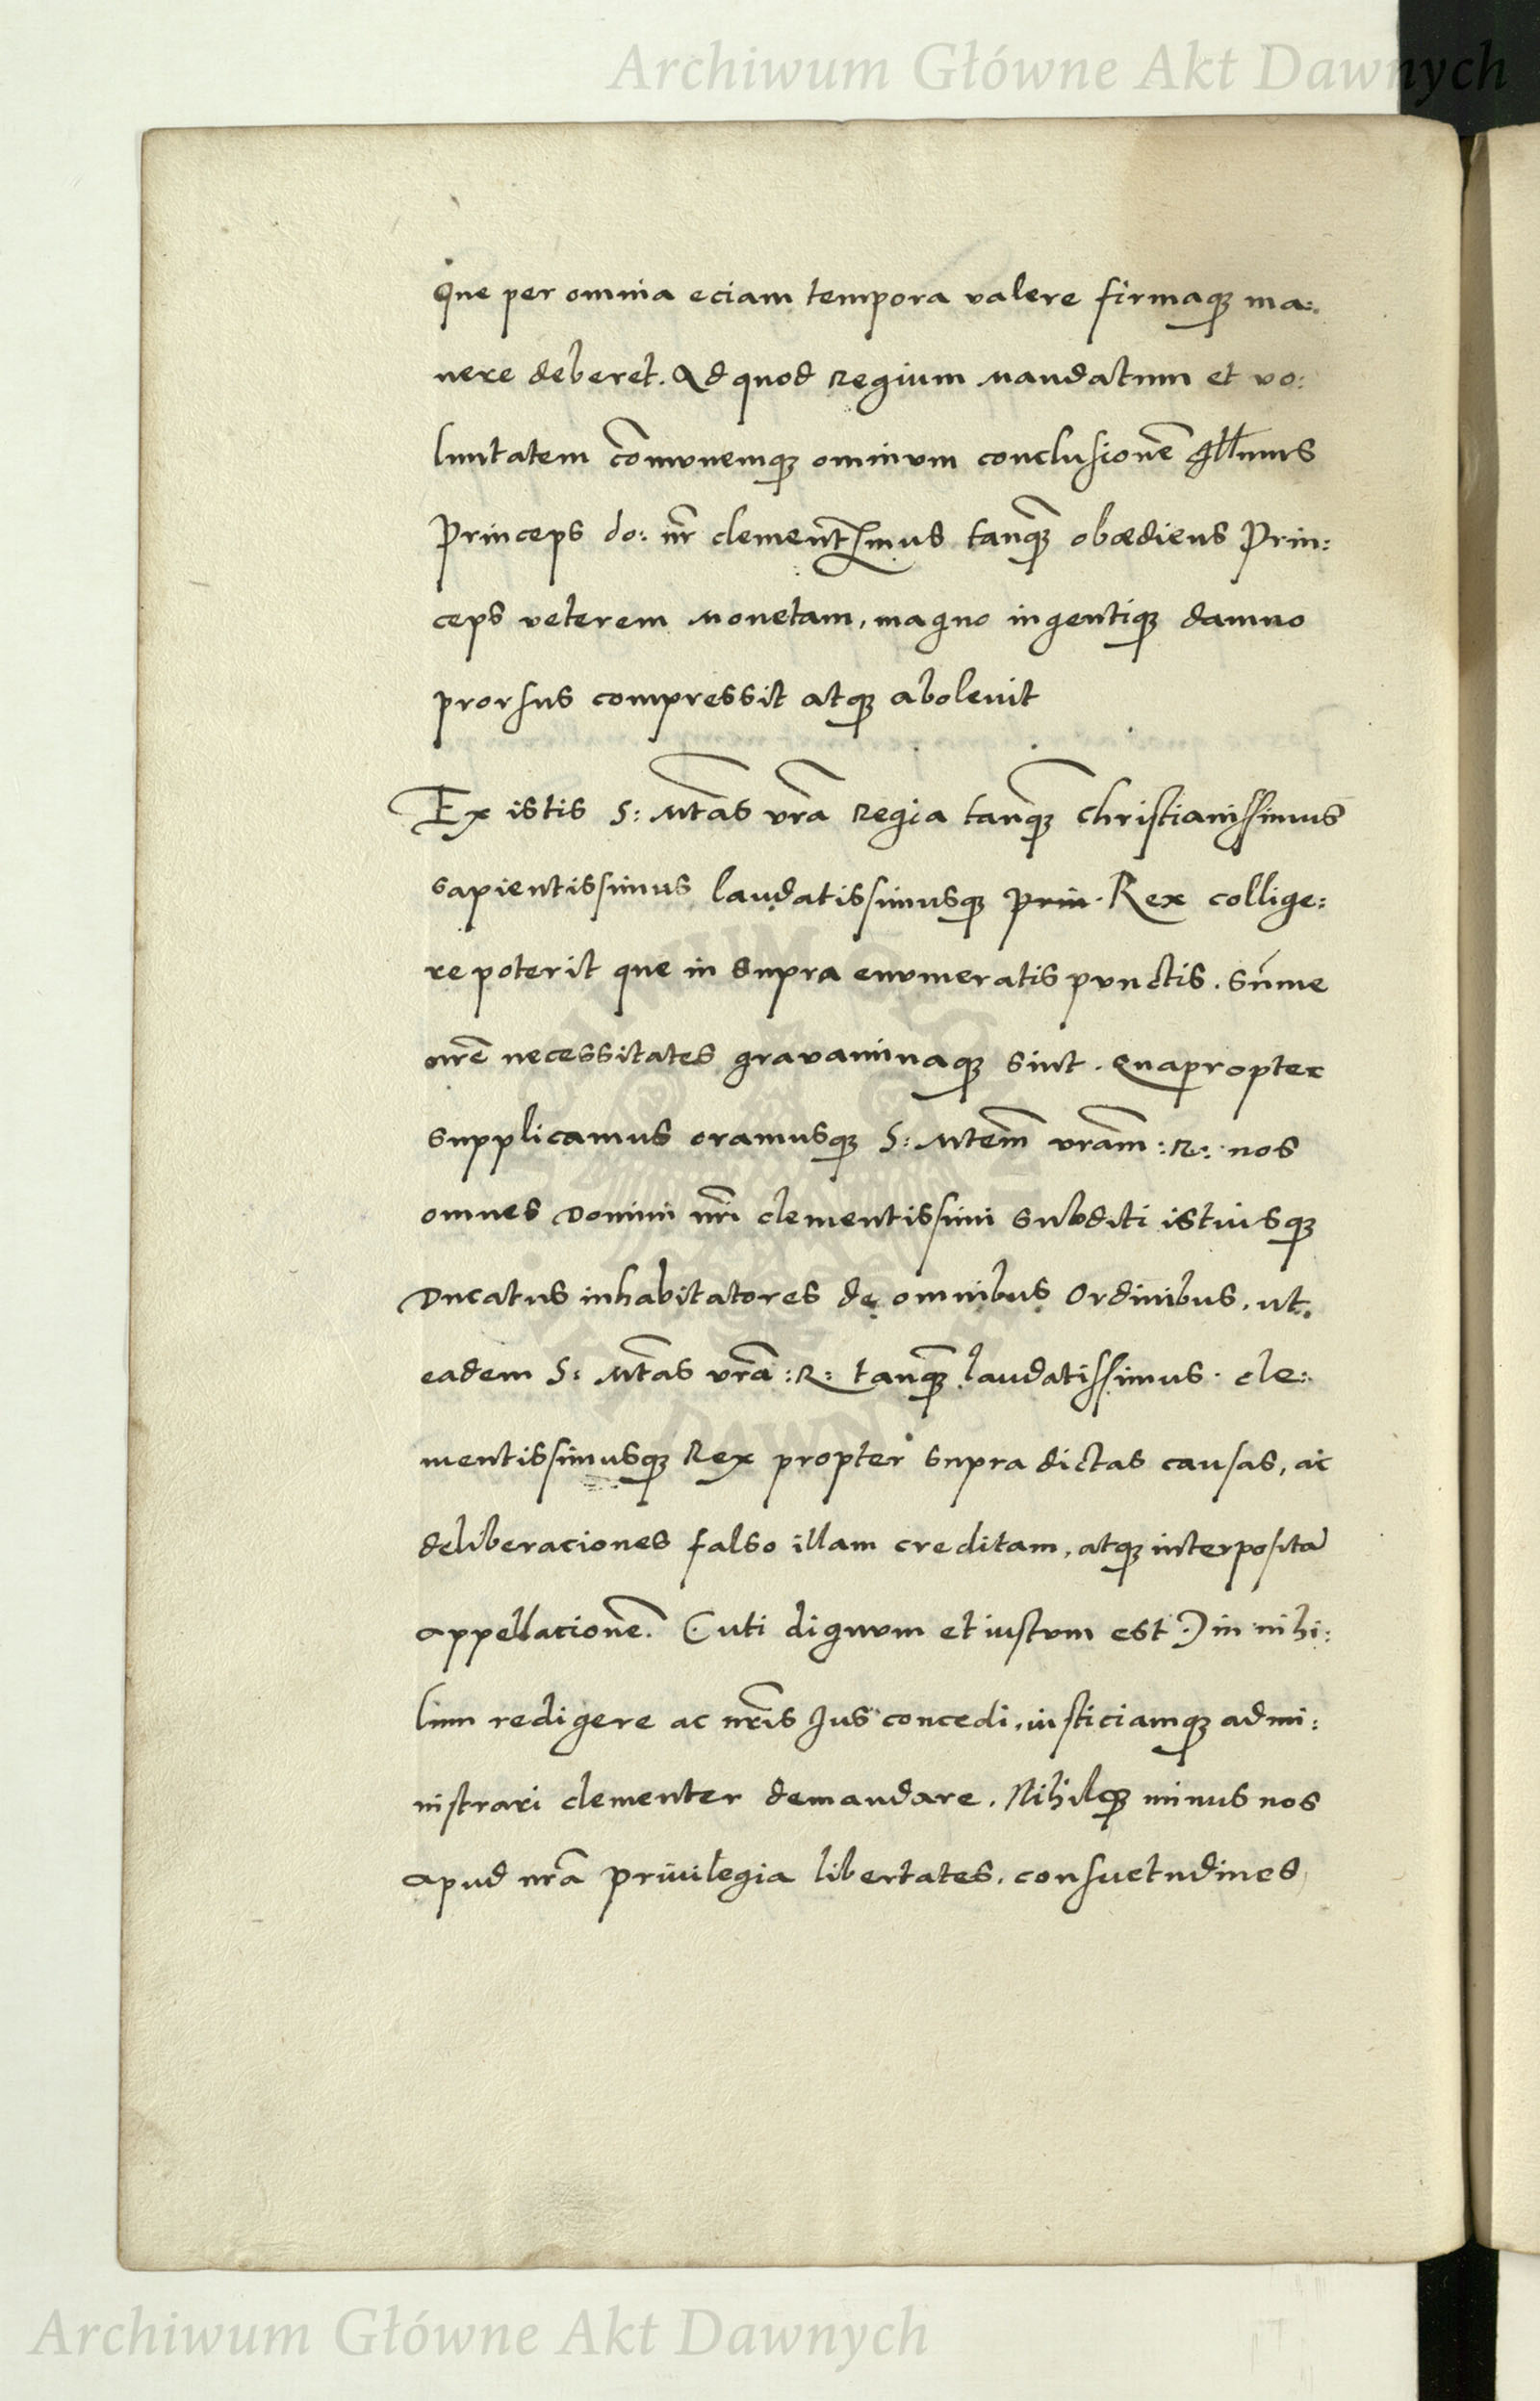 Archiwum Główne Akt Dawnych
Que per omnia eciam tempora valere firmaq3 ma:
nere deberet. Ad quod Regium Mandatum et vo:
luntatem cōmunemq3 omnium conclusionē Illmus
Princeps do: nr̄ clementssmus tanq̄3 obœdiens Prin:
ceps veterem Monetam, magno ingentiq3 damno
prorsus compressit atq3 abolevit
Ex istis S: Mtās vrā Regia tanq̄3 christianissimus
sapientissimus laudatissimusq3 prin. Rex collige:
re poterit que in supra enumeratis punctis. sūme
nrē necessitates gravaminaq3 sint. Quapropter
supplicamus oramusq3 S: Mtem̄ vram̄ :R: nos
omnes Domini nrī clementissimi subditi istiusq3
Ducatus inhabitatores de omnibus Ordinibus, ut
eadem S: Mtās vrā :R: tanq̄3 laudatissimus. cle:
mentissimusq3 Rex propter supra dictas causas, ac
deliberaciones falso illam creditam, atq3 interpositā
appellacionē. (uti dignum et iustum est) in nihi:
lum redigere ac nrīs Jus concedi, iusticiamq3 admi:
nistrari clementer demandare. Nihilq3 minus nos
apud nrā privilegia libertates. consuetudines
ARCHIWUM GŁÓWNE AKT DAWNYCH
Archiwum Główne Akt Dawnych